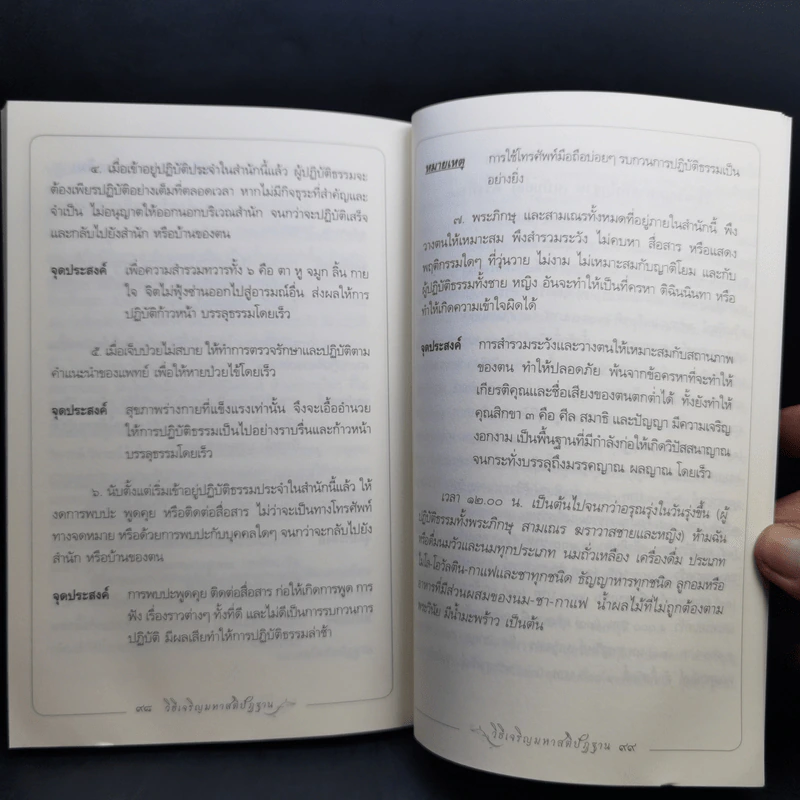 ๔. เมื่อเข้าอยู่ปฏิบัติประจำในสำนักนี้แล้ว ผู้ปฏิบัติธรรมจะ
ต้องเพียรปฏิบัติอย่างเต็มที่ตลอดเวลา หากไม่มีกิจธุระที่สำคัญและ
จำเป็น ไม่อนุญาตให้ออกนอกบริเวณสำนัก จนกว่าจะปฏิบัติเสร็จ
และกลับไปยังสำนัก หรือบ้านของตน
จุดประสงค์ เพื่อความสำรวมทวารทั้ง ๖ คือ ตา หู จมูก ลิ้น กาย
ใจ จิตไม่ฟุ้งซ่านออกไปสู่อารมณ์อื่น ส่งผลให้การ
ปฏิบัติก้าวหน้า บรรลุธรรมโดยเร็ว
๕. เมื่อเจ็บป่วยไม่สบาย ให้ทำการตรวจรักษาและปฏิบัติตาม
คำแนะนำของแพทย์ เพื่อให้หายป่วยไข้โดยเร็ว
จุดประสงค์ สุขภาพร่างกายที่แข็งแรงเท่านั้น จึงจะเอื้ออำนวย
ให้การปฏิบัติธรรมเป็นไปอย่างราบรื่นและก้าวหน้า
บรรลุธรรมโดยเร็ว
๖. นับตั้งแต่เริ่มเข้าอยู่ปฏิบัติธรรมประจำในสำนักนี้แล้ว ให้
งดการพบปะ พูดคุย หรือติดต่อสื่อสาร ไม่ว่าจะเป็นทางโทรศัพท์
ทางจดหมาย หรือด้วยการพบปะกับบุคคลใดๆ จนกว่าจะกลับไปยัง
สำนัก หรือบ้านของตน
จุดประสงค์ การพบปะพูดคุย ติดต่อสื่อสาร ก่อให้เกิดการพูด การ
ฟัง เรื่องราวต่างๆ ทั้งที่ดี และไม่ดีเป็นการรบกวนการ
ปฏิบัติ มีผลเสียทำให้การปฏิบัติธรรมล่าช้า
๙๘ วิธีเจริญมหาสติปัฏฐาน
หมายเหตุ การใช้โทรศัพท์มือถือบ่อยๆ รบกวนการปฏิบัติธรรมเป็น
อย่างยิ่ง
๗. พระภิกษุ และสามเณรทั้งหมดที่อยู่ภายในสำนักนี้ พึง
วางตนให้เหมาะสม พึงสำรวมระวัง ไม่คบหา สื่อสาร หรือแสดง
พฤติกรรมใดๆ ที่วุ่นวาย ไม่งาม ไม่เหมาะสมกับญาติโยม และกับ
ผู้ปฏิบัติธรรมทั้งชาย หญิง อันจะทำให้เป็นที่ครหา ติฉินนินทา หรือ
ทำให้เกิดความเข้าใจผิดได้
จุดประสงค์ การสำรวมระวังและวางตนให้เหมาะสมกับสถานภาพ
ของตน ทำให้ปลอดภัย พ้นจากข้อครหาที่จะทำให้
เกียรติคุณและชื่อเสียงของตนตกต่ำได้ ทั้งยังทำให้
คุณสิกขา ๓ คือ ศีล สมาธิ และปัญญา มีความเจริญ
งอกงาม เป็นพื้นฐานที่มีกำลังก่อให้เกิดวิปัสสนาญาณ
จนกระทั่งบรรลุถึงมรรคญาณ ผลญาณ โดยเร็ว
เวลา ๑๒.๐๐ น. เป็นต้นไปจนกว่าอรุณรุ่งในวันรุ่งขึ้น (ผู้
ปฏิบัติธรรมทั้งพระภิกษุ สามเณร ฆราวาสชายและหญิง) ห้ามฉัน
หรือดื่มนมวัวและนมทุกประเภท นมถั่วเหลือง เครื่องดื่ม ประเภท
ไมโล-โอวัลติน-กาแฟและชาทุกชนิด ธัญญาหารทุกชนิด ลูกอมหรือ
อาหารที่มีส่วนผสมของนม-ชา-กาแฟ น้ำผลไม้ที่ไม่ถูกต้องตาม
พระวินัย มีน้ำมะพร้าว เป็นต้น
วิธีเจริญมหาสติปัฏฐาน ๙๙